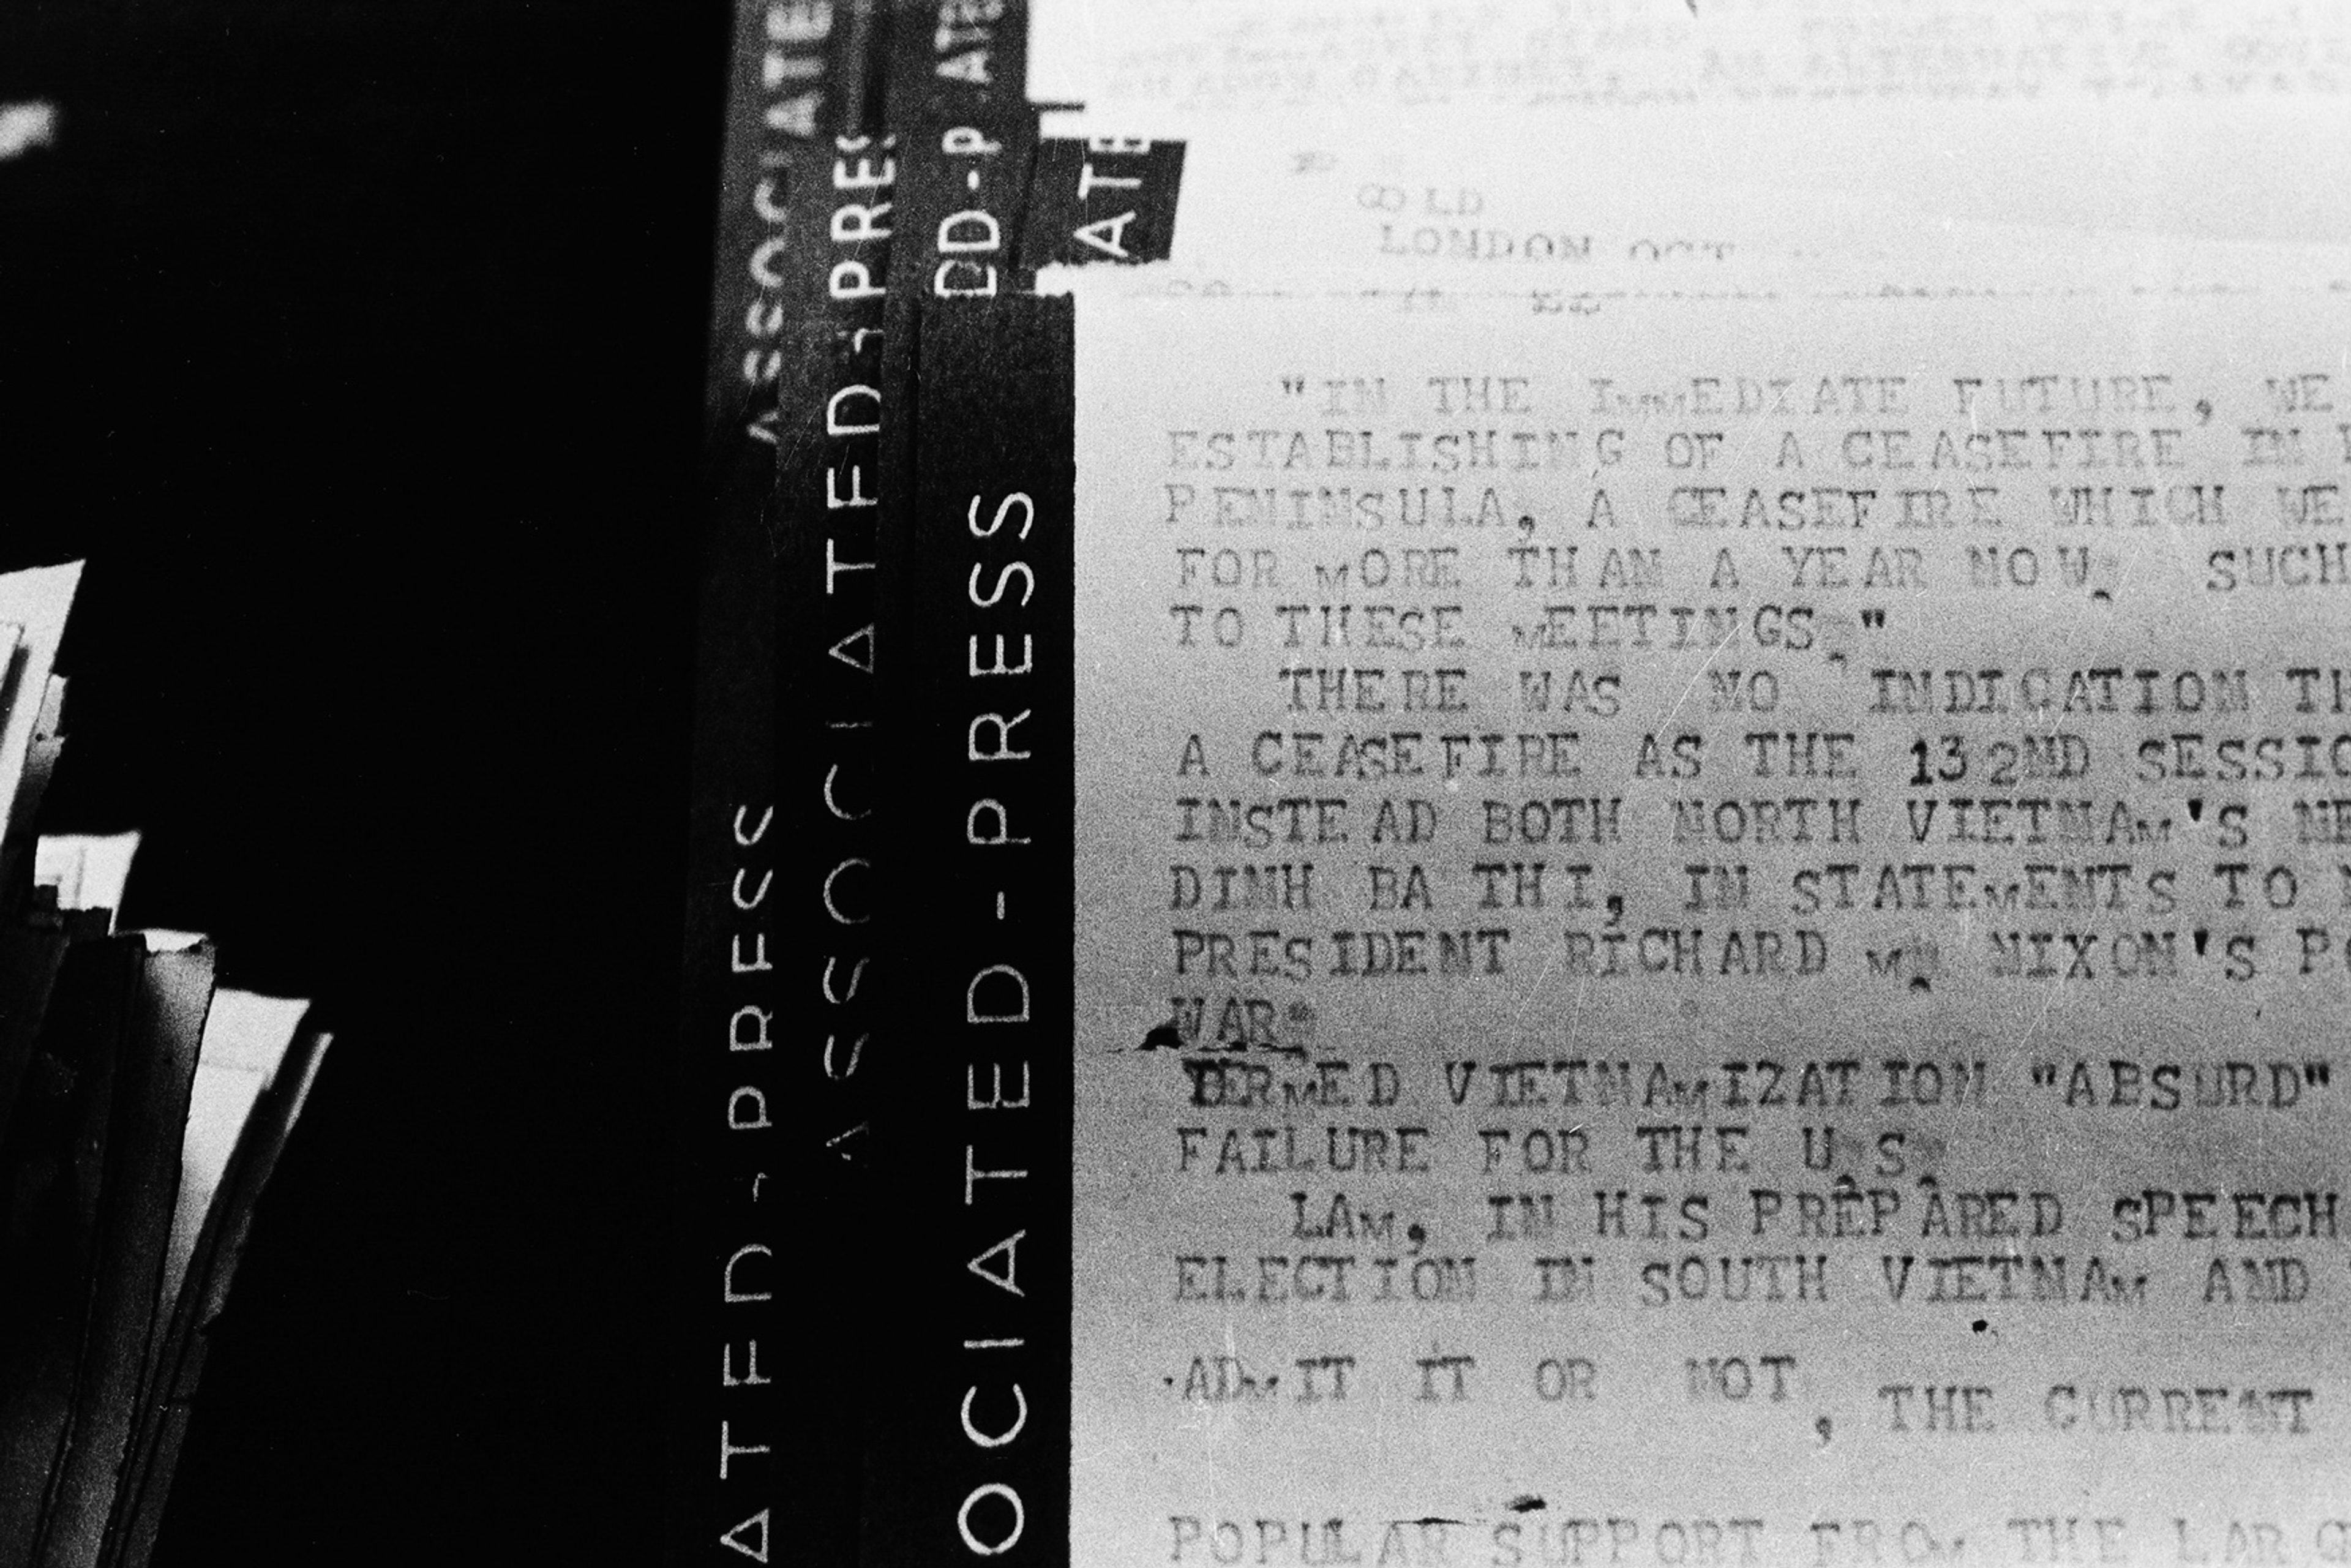 ASSOCIATE
PRES
ED-P
ATE
ATE
ASSOCIATED-PRES
ATED-PRESS
OCIATED-PRESS
GOLD
LONDON OCT
"IN THE IMMEDIATE FUTURE, WE
ESTABLISHING OF A CEASEFIRE IN
PENINSULA, A CEASEFIRE WHICH WE
FOR MORE THAN A YEAR NOW. SUCH
TO THESE MEETINGS."
THERE WAS NO INDICATION TH
A CEASEFIRE AS THE 132ND SESSIO
INSTEAD BOTH NORTH VIETNAM'S
DINH BA THI, IN STATEMENTS TO
PRESIDENT RICHARD M. NIXON'S P
WAR.
TERMED VIETNAMIZATION "ABSURD"
FAILURE FOR THE U.S.
LAM, IN HIS PREPARED SPEECH
ELECTION IN SOUTH VIETNAM AND
ADMIT IT OR NOT, THE CURRENT
POPULAR SUPPORT FROM THE LARG